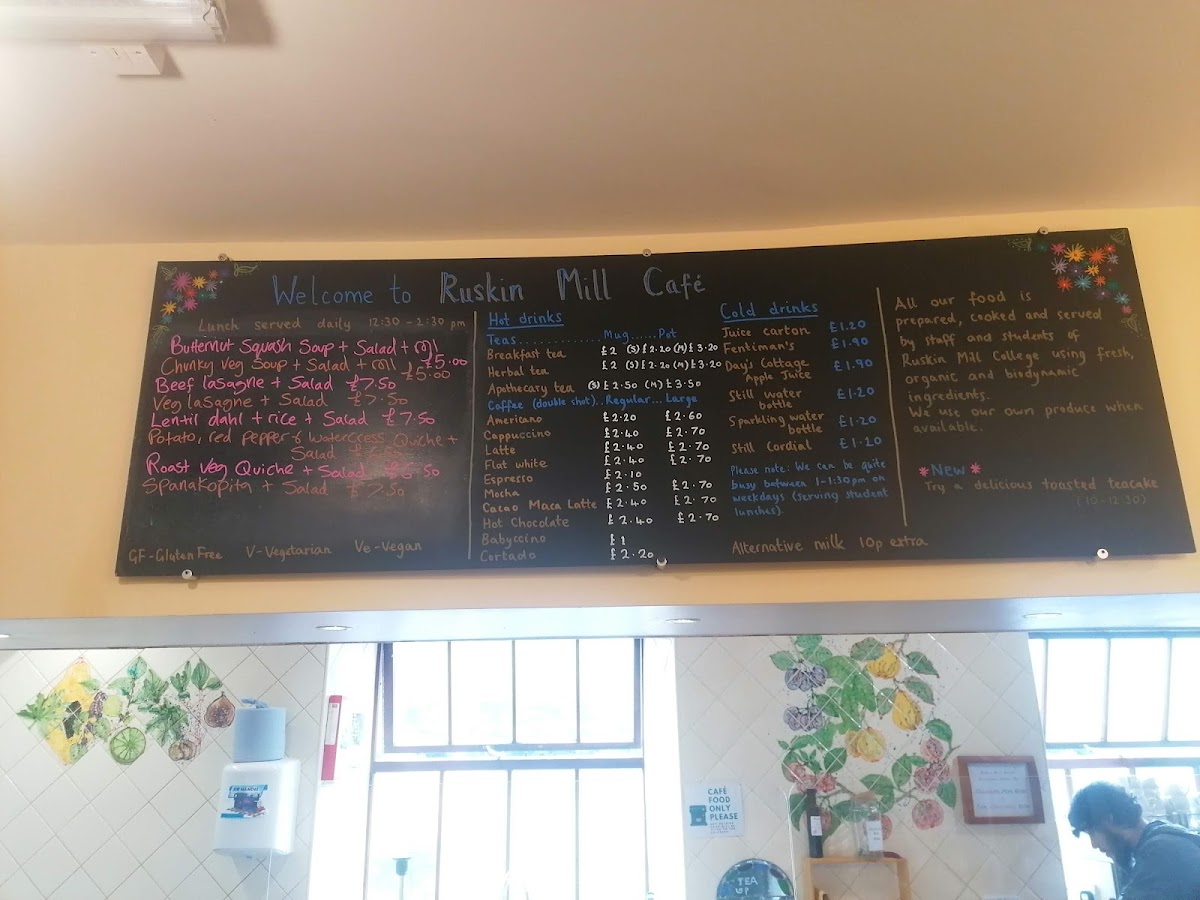 Welcome to Ruskin Mill Café
Lunch served daily 12:30 - 2:30 pm
Butternut Squash Soup + Salad + roll
£5.00
Chunky Veg Soup + Salad + roll
£5.00
Beef lasagne + Salad £7.50
Veg lasagne + Salad £7.50
Lentil dahl + rice + Salad £7.50
Potato, red pepper & watercress Quiche +
Salad
Roast Veg Quiche + Salad £6.50
Spanakopita + Salad £7.50
GF-Gluten Free V-Vegetarian Ve-Vegan
Hot drinks
Teas.............. Mug......Pot
Breakfast tea £2 (S) £2.20 (M) £3.20
Herbal tea £2 (S) £2.20 (M) £3.20
Apothecary tea (S) £2.50 (M) £3.50
Coffee (double shot)..Regular...Large
Americano £2.20 £2.60
Cappuccino £2.40 £2.70
Latte £2.40 £2.70
Flat white £2.40 £2.70
Espresso £2.10
Mocha £2.50 £2.70
Cacao Maca Latte £2.40 £2.70
Hot Chocolate £2.40 £2.70
Babyccino £1
Cortado £2.20
Cold drinks
Juice carton £1.20
Fentiman's £1.90
Day's Cottage
Apple Juice £1.90
Still water
bottle £1.20
Sparkling water
bottle £1.20
Still cordial £1.20
Please note: We can be quite
busy between 1-1:30pm on
weekdays (serving student
lunches).
Alternative milk 10p extra
All our food is
prepared, cooked and served
by staff and students of
Ruskin Mill College using fresh,
organic and biodynamic
ingredients.
We use our own produce when
available.
*New*
Try a delicious toasted teacake
(10-12:30)
CAFÉ
FOOD
ONLY
PLEASE
TEA